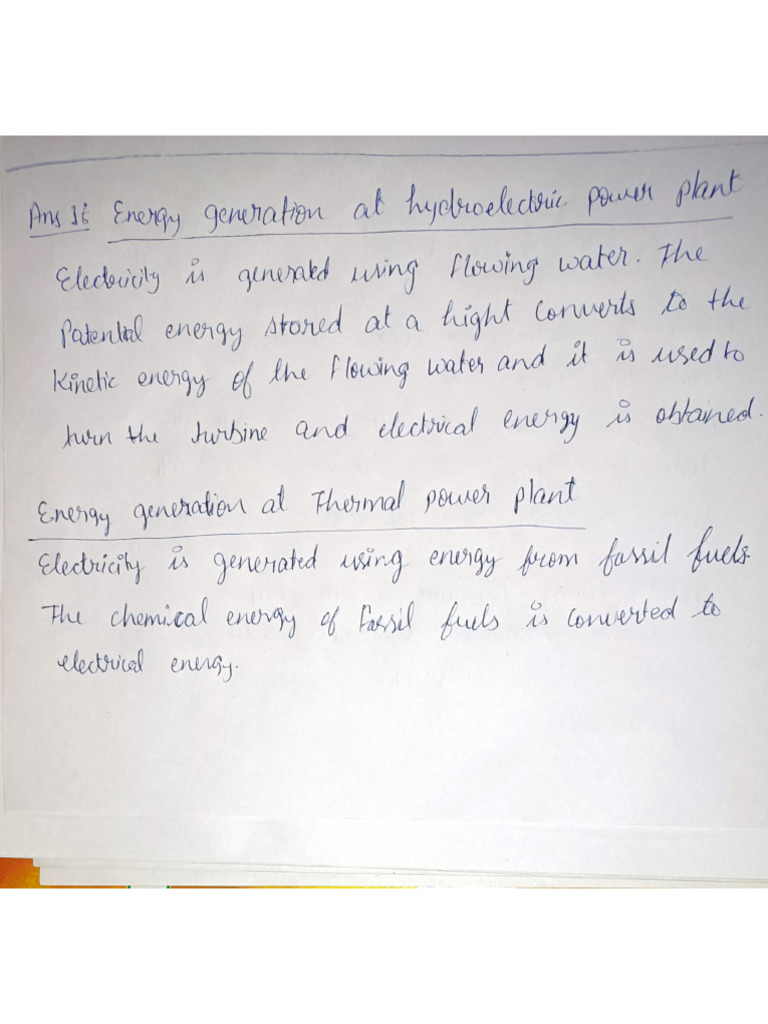 Ans 16 Energy generation at hydroelectric power plant
Electricity is generated using flowing water. The
Patential energy stored at a hight converts to the
Kinetic energy of the flowing water and it is used to
turn the turbine and electrical energy is obtained.
Energy generation at Thermal power plant
Electricity is generated using energy from fossil fuels.
The chemical energy of fossil fuels is converted to
electrical energy.